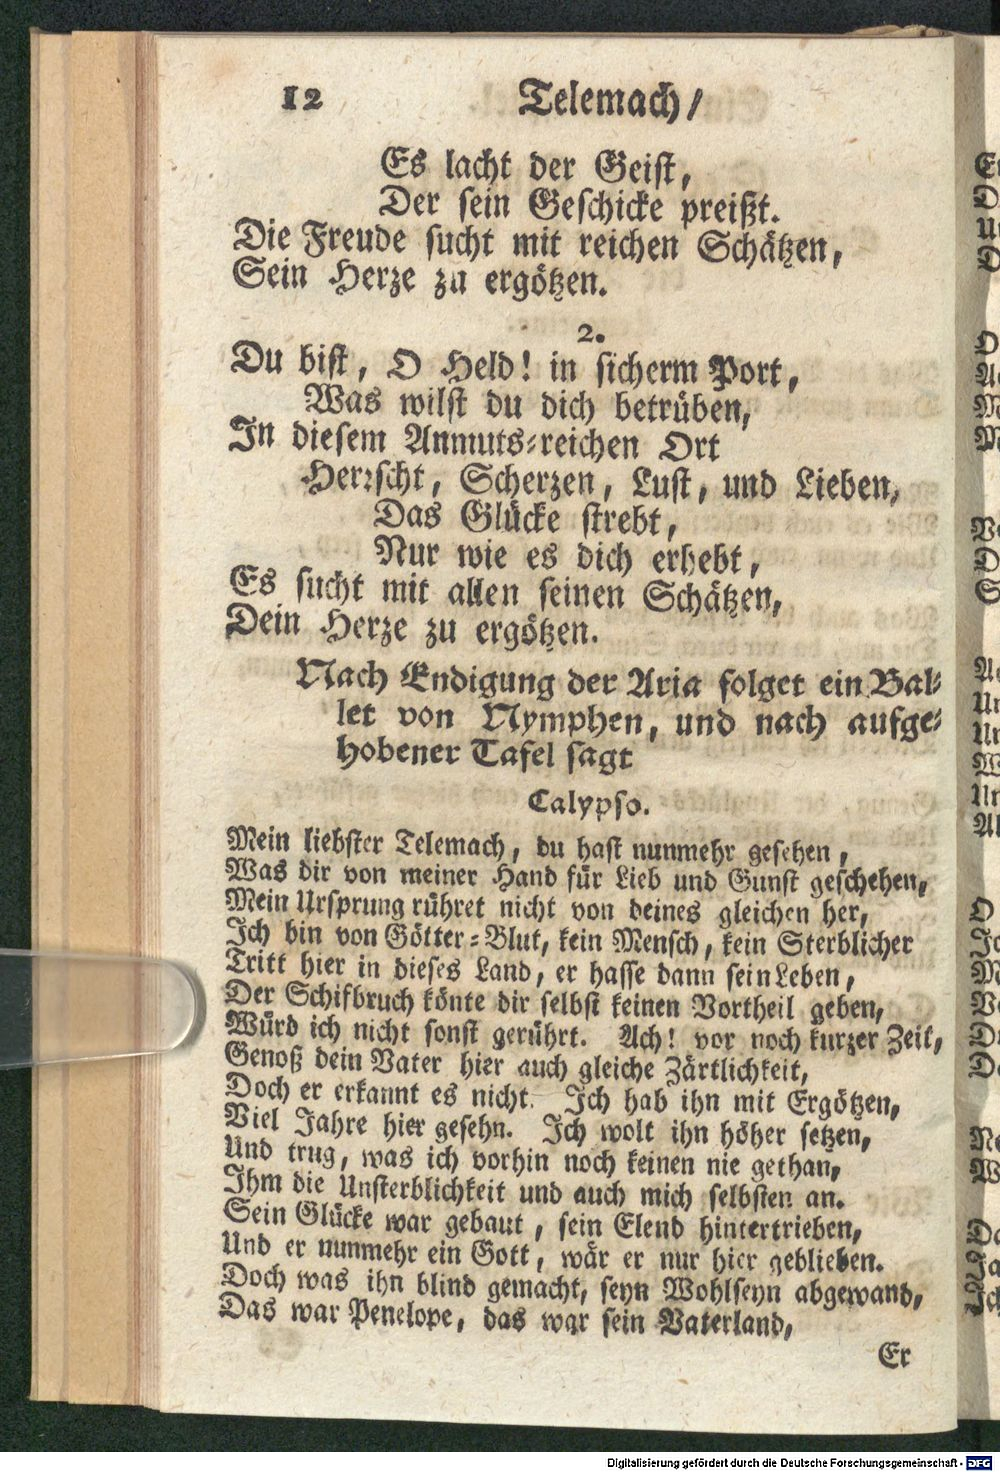 12 Telemach/
Es lacht der Geist,
Der sein Geschicke preißt.
Die Freude sucht mit reichen Schätzen,
Sein Herze zu ergötzen.
2.
Du bist, O Held! in sicherm Port,
Was wilst du dich betrüben,
In diesem Anmuts-reichen Ort
Herrscht, Scherzen, Lust, und Lieben,
Das Glücke strebt,
Nur wie es dich erhebt,
Es sucht mit allen seinen Schätzen,
Dein Herze zu ergötzen.
Nach Endigung der Aria folget ein Bal-
let von Nymphen, und nach aufge-
hobener Tafel sagt
Calypso.
Mein liebster Telemach, du hast nunmehr gesehen,
Was dir von meiner Hand für Lieb und Gunst geschehen,
Mein Ursprung rühret nicht von deines gleichen her,
Ich bin von Götter-Blut, kein Mensch, kein Sterblicher
Tritt hier in dieses Land, er hasse dann sein Leben,
Der Schifbruch könte dir selbst keinen Vortheil geben,
Würd ich nicht sonst gerührt. Ach! vor noch kurzer Zeit,
Genoß dein Vater hier auch gleiche Zärtlichkeit,
Doch er erkannt es nicht. Ich hab ihn mit Ergötzen,
Viel Jahre hier gesehn. Ich wolt ihn höher setzen,
Und trug, was ich vorhin noch keinen nie gethan,
Ihm die Unsterblichkeit und auch mich selbsten an.
Sein Glücke war gebaut, sein Elend hintertrieben,
Und er nunmehr ein Gott, wär er nur hier geblieben.
Doch was ihn blind gemacht, seyn Wohlseyn abgewand,
Das war Penelope, das war sein Vaterland,
Er
Digitalisierung gefördert durch die Deutsche Forschungsgemeinschaft - DFG